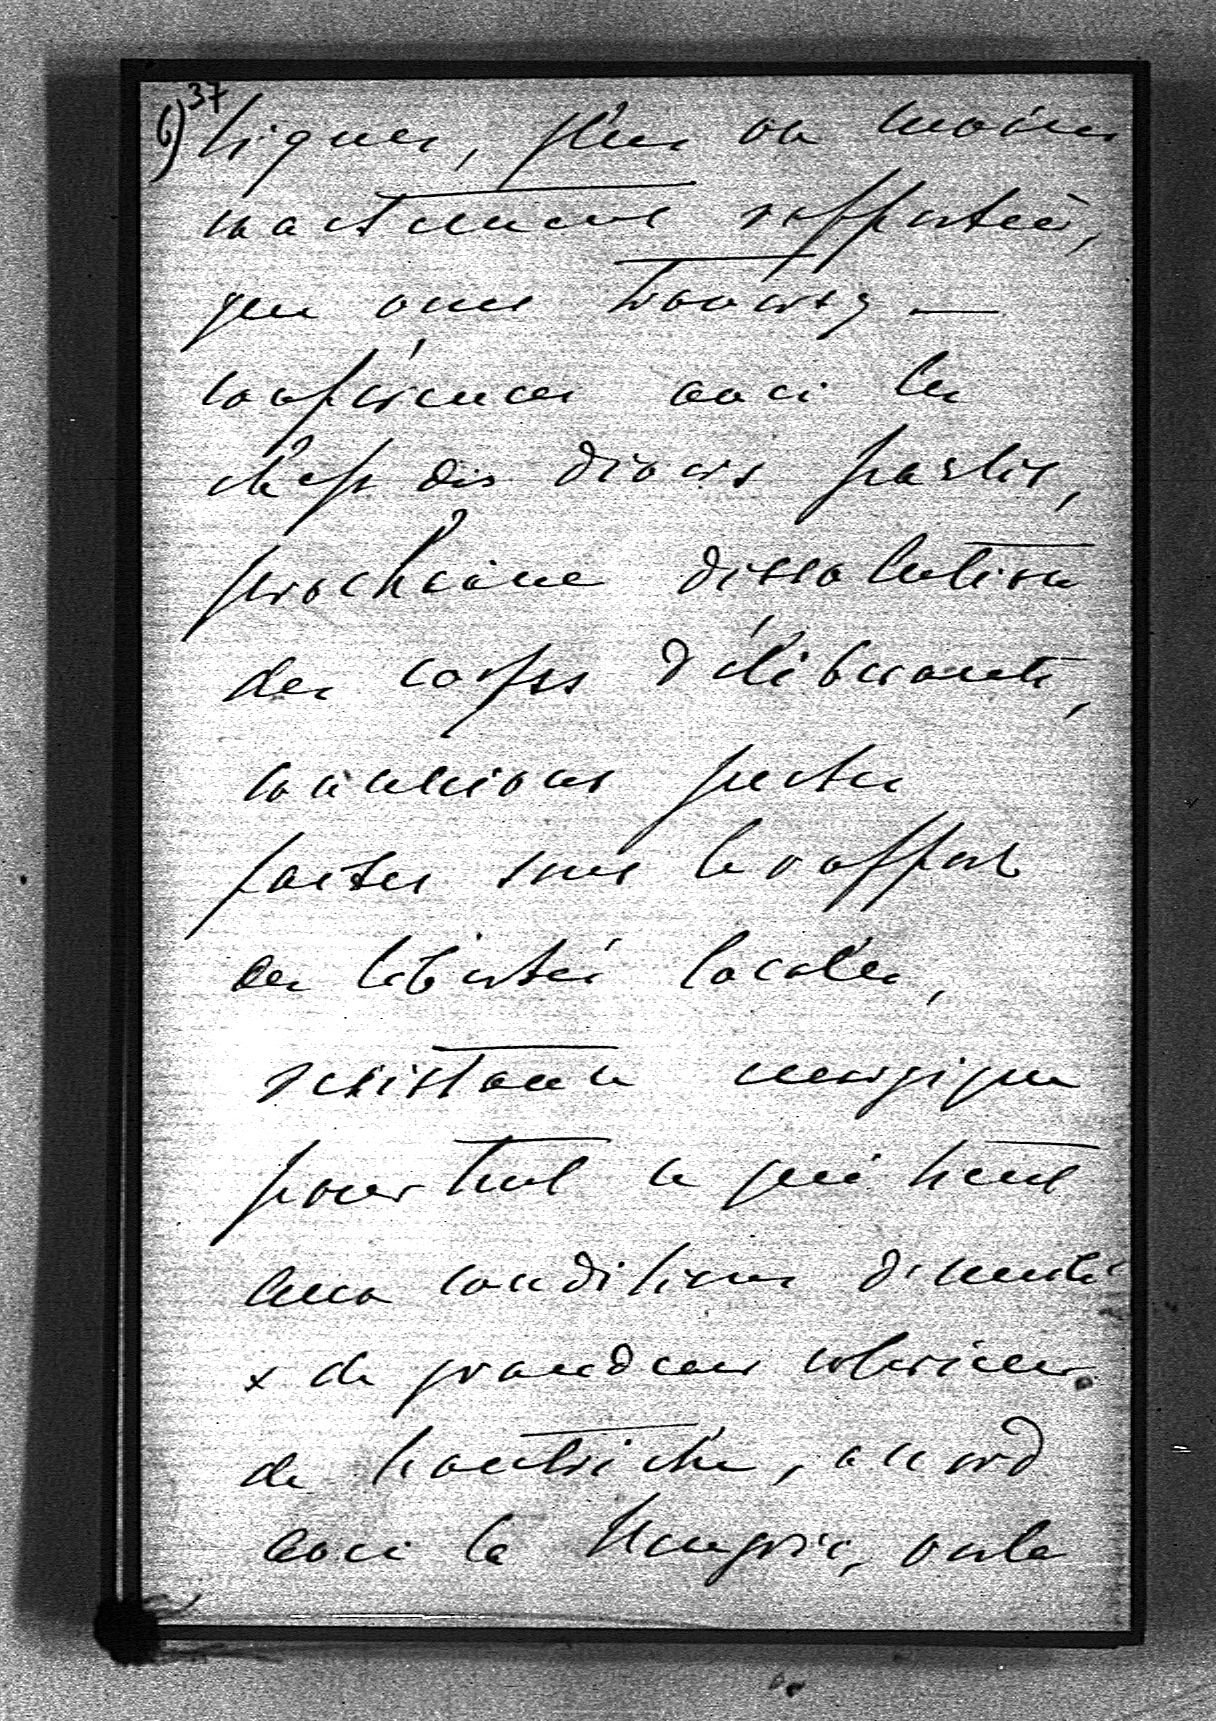 6) 37
tiques, plus ou moins
exactement rapportées,
que vous trouvez —
conférences avec les
chefs des divers partis,
prochaine dissolution
des corps délibérants,
concessions justes
faites sous le rapport
des libertés locales,
résistance énergique
pour tout ce qui tient
aux conditions d'unité
& de grandeur extérieure
de l'autriche, accord
avec la Hongrie, voila